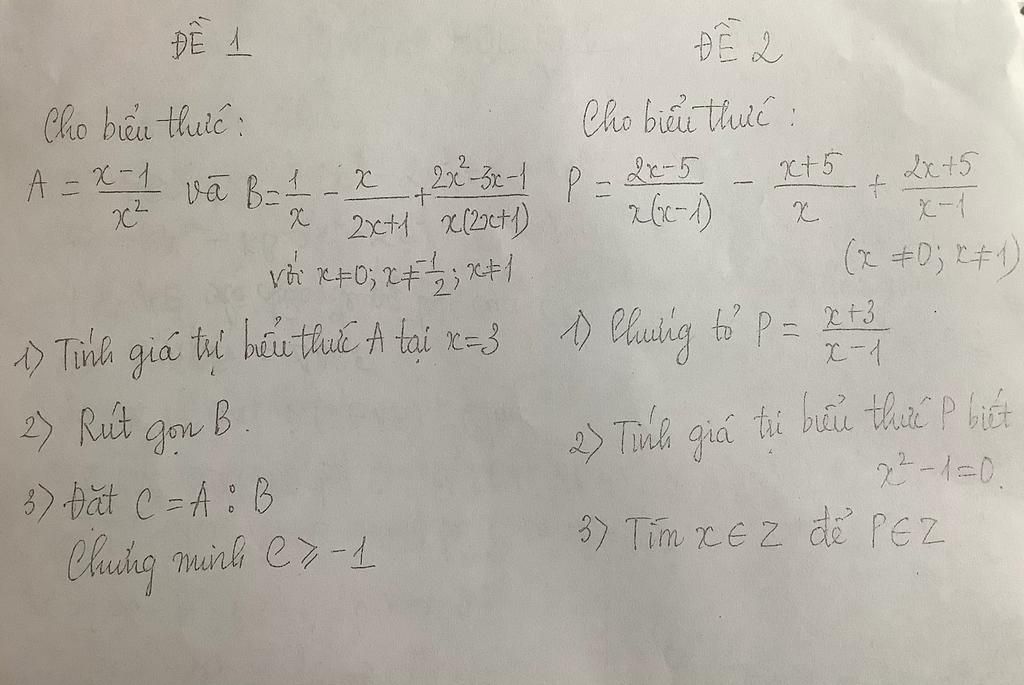 ĐỀ 1
Cho biểu thức:
A = (x-1)/x² và B = 1/x - x/(2x+1) + (2x²-3x-1)/(x(2x+1))
với x≠0; x≠-1/2; x≠1
1) Tính giá trị biểu thức A tại x=3
2) Rút gọn B.
3) Đặt C = A : B
Chứng minh C ⩾ -1
ĐỀ 2
Cho biểu thức:
P = (2x-5)/(x(x-1)) - (x+5)/x + (2x+5)/(x-1)
(x ≠0; x≠1)
1) Chứng tỏ P = (x+3)/(x-1)
2) Tính giá trị biểu thức P biết
x²-1=0.
3) Tìm x∈Z để P∈Z